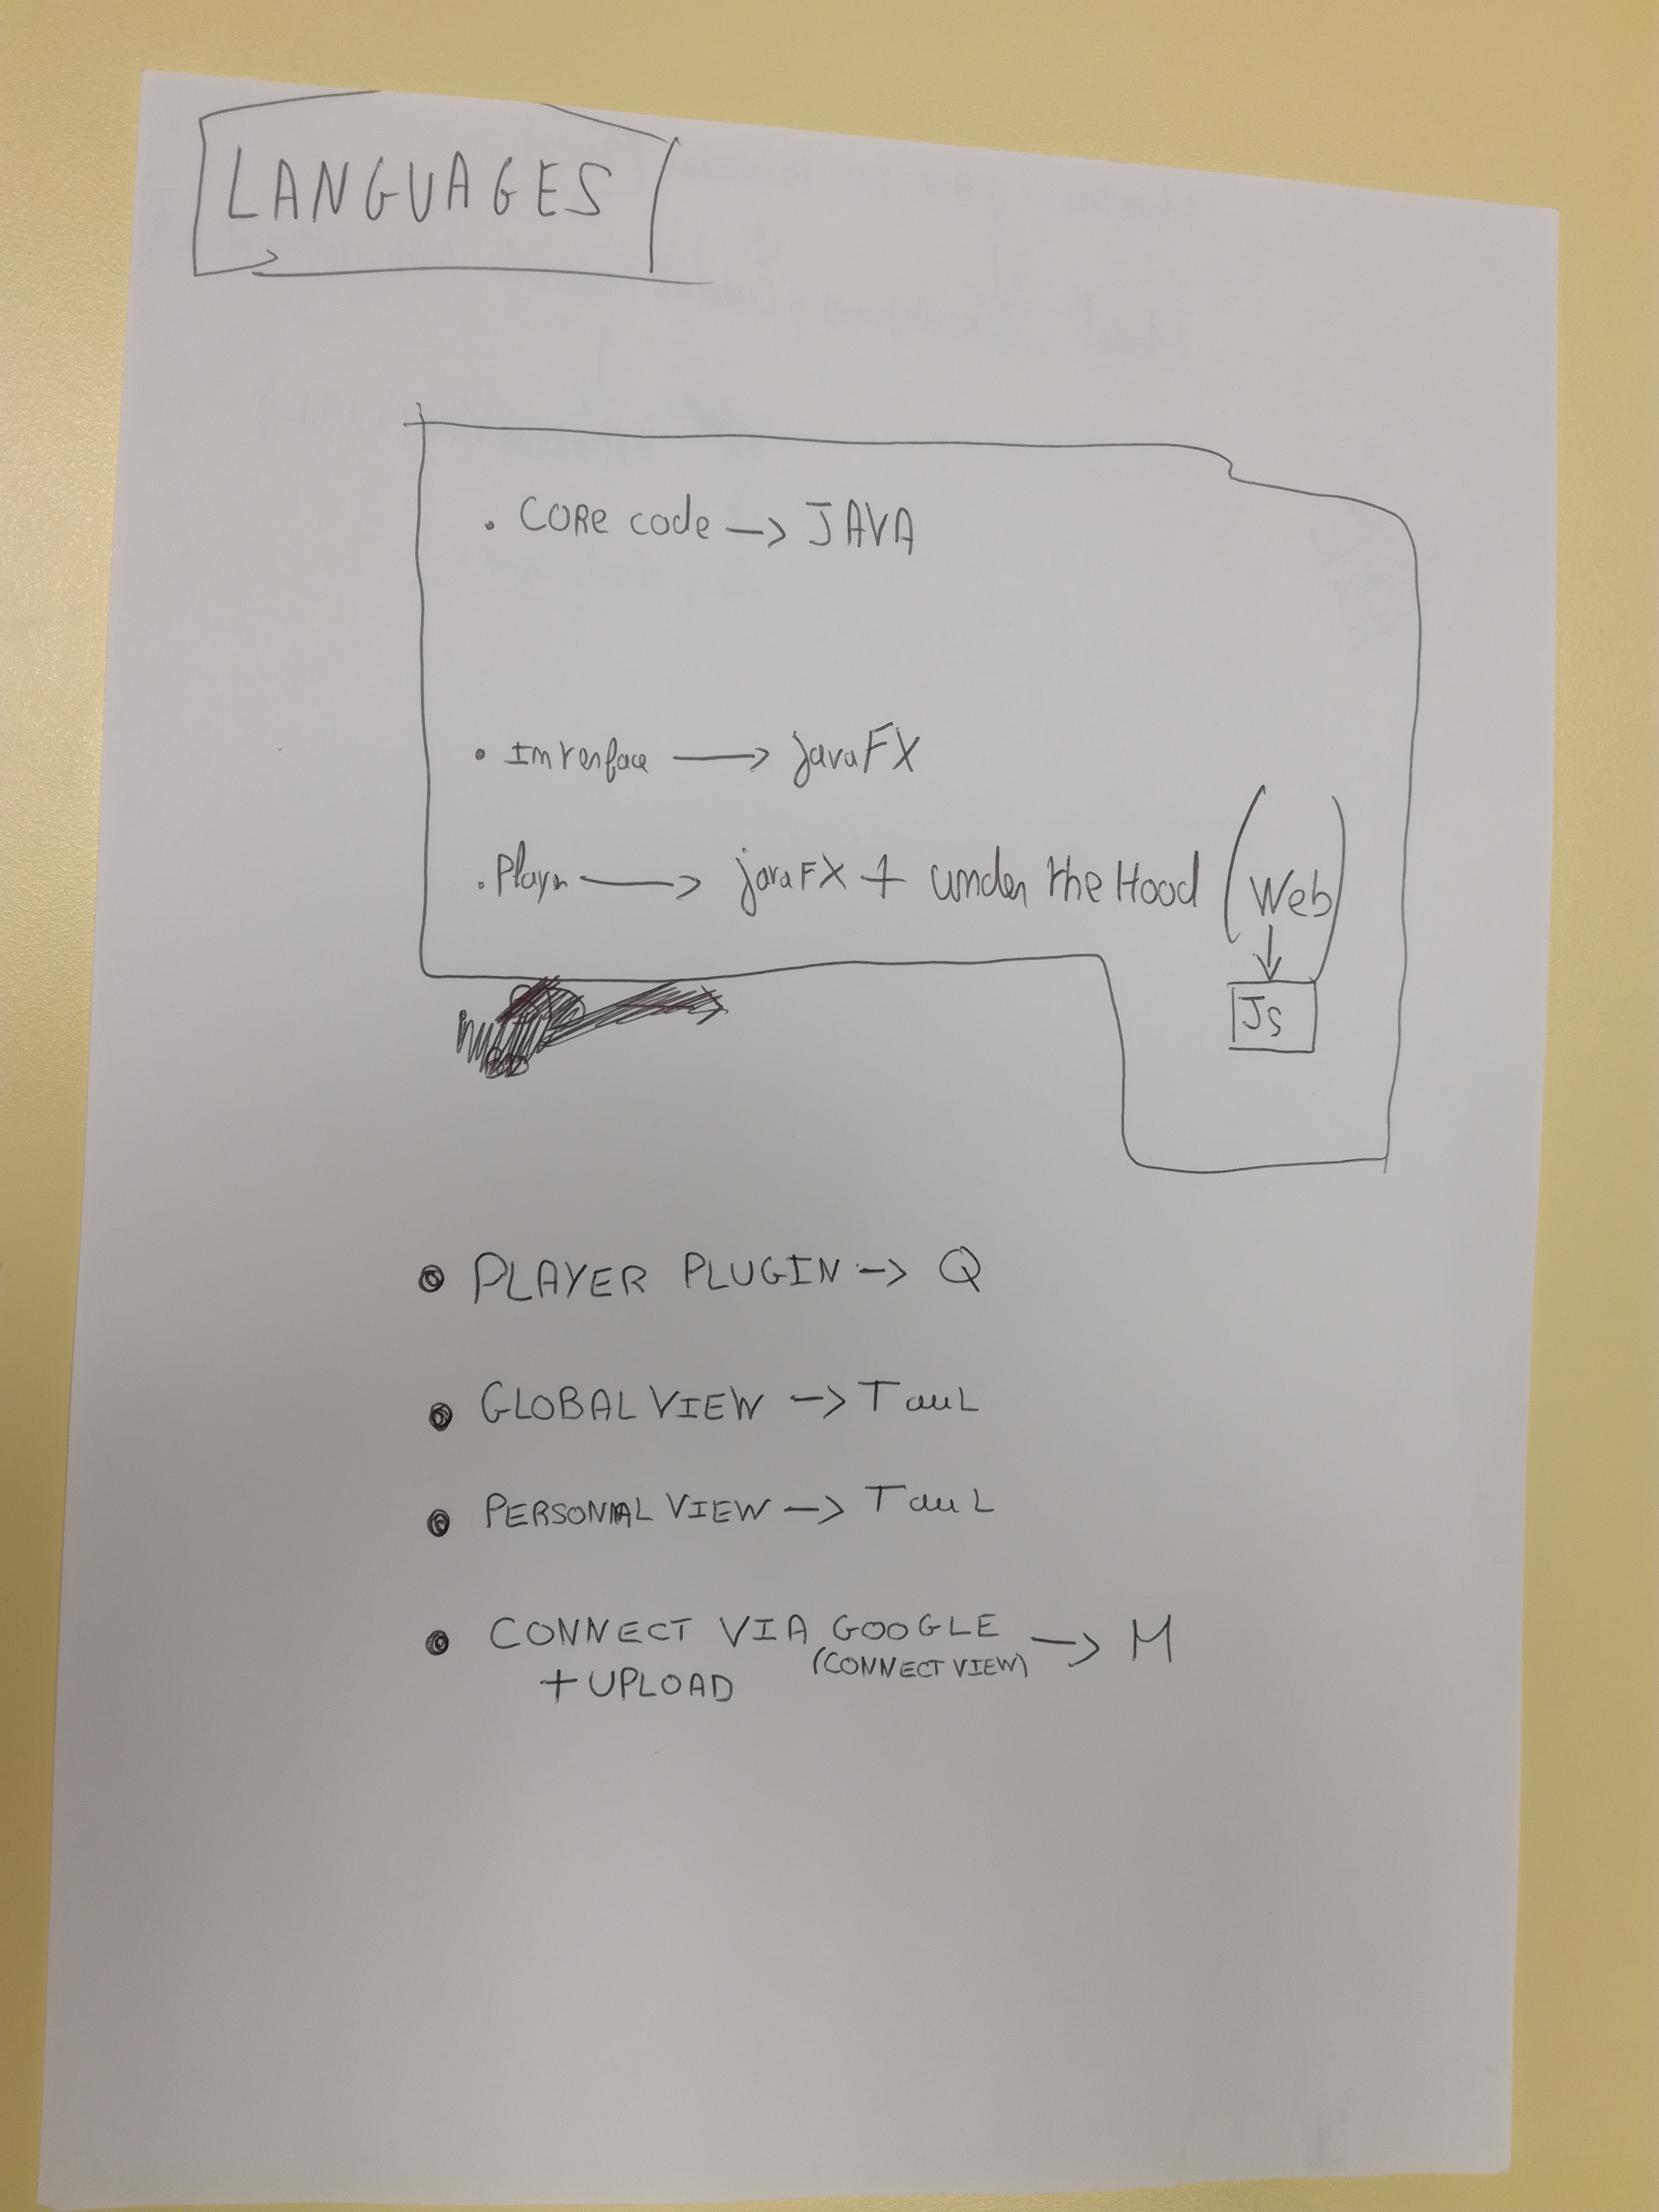 LANGUAGES
. CORe code -> JAVA
• Interface -> javaFX
. Player -> javaFX + under the Hood (Web)
↓
Js
• PLAYER PLUGIN -> Q
• GLOBAL VIEW -> TauL
• PERSONAL VIEW -> TauL
• CONNECT VIA GOOGLE -> M
(CONNECT VIEW)
+ UPLOAD